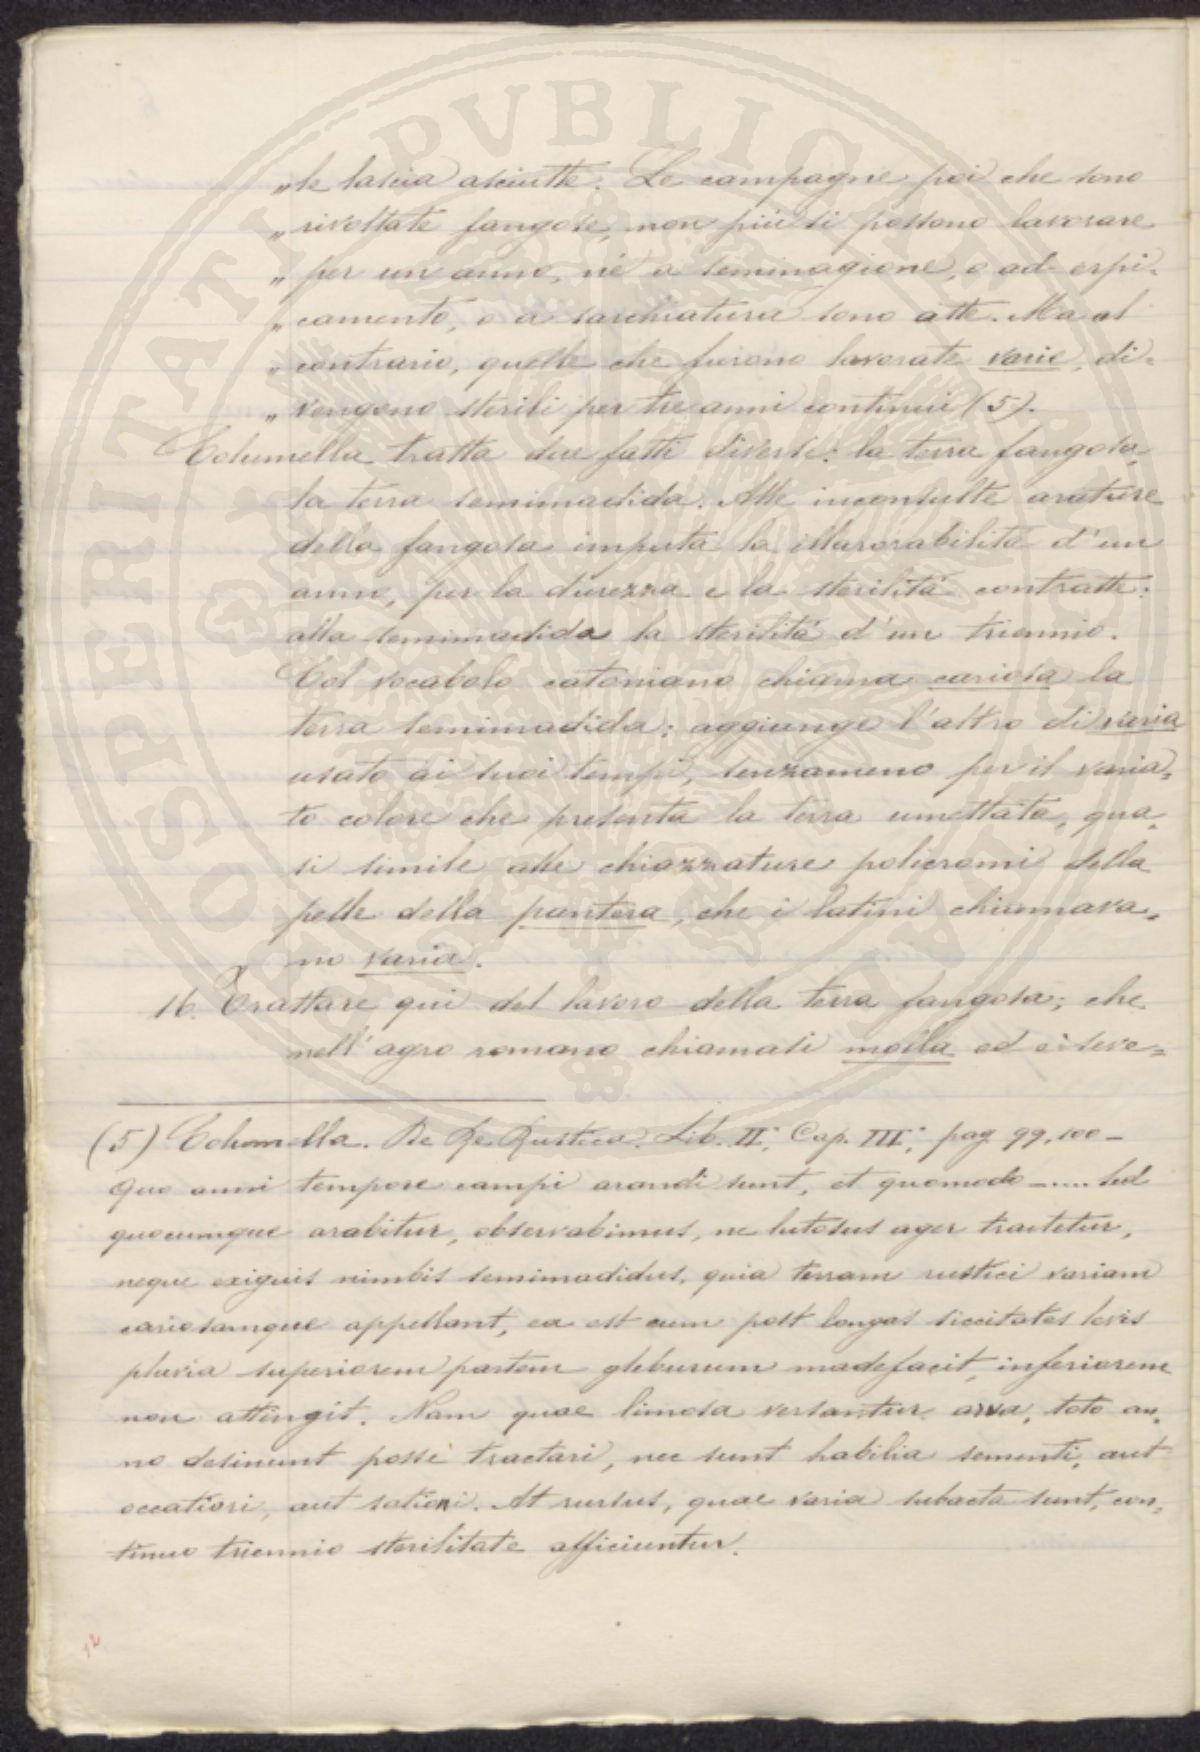 „le lascia asciutte. Le campagne poi che sono
„rivoltate fangose, non più si possono lavorare
„per un anno, nè a seminagione, o ad erpi-
„camento, o a sarchiatura sono atte. Ma al
„contrario, quelle che furono lavorate varie, di-
„vengono sterili per tre anni continui (5).
Columella tratta due fatti diversi: la terra fangosa,
la terra semimadida. Alle inconsulte arature
della fangosa imputa la illavorabilità d'un
anno, per la durezza e la sterilità contratte:
alla semimadida la sterilità d'un triennio.
Col vocabolo catoniano chiama cariosa la
terra semimadida; aggiunge l'altro di varia
usato ai suoi tempi, senzameno per il varia-
to colore che presenta la terra umettata, qua-
si simile alle chiazzature policromi della
pelle della pantera, che i latini chiamava-
no varia.
16. Trattare qui del lavoro della terra fangosa; che
nell'agro romano chiamasi molla ed è seve-
(5) Columella. De Re Rustica. Lib. II.° Cap. III.° pag. 99, 100 -
Quo anni tempore campi arandi sunt, et quomodo - ..... Sed
quocumque arabitur, observabimus, ne lutosus ager tractetur,
neque exiguis nimbis semimadidus, quia terram rustici variam
cariosamque appellant, ea est cum post longas siccitates levis
pluvia superiorem partem glebarum madefacit, inferiorem
non attingit. Nam quae limosa versantur arva, toto an-
no desinunt posse tractari, nec sunt habilia sementi, aut
occatiori, aut sationi. At rursus, quae varia subacta sunt, con-
tinuo triennio sterilitate afficiuntur.
12
PUBLICAE
PROSPERITATI